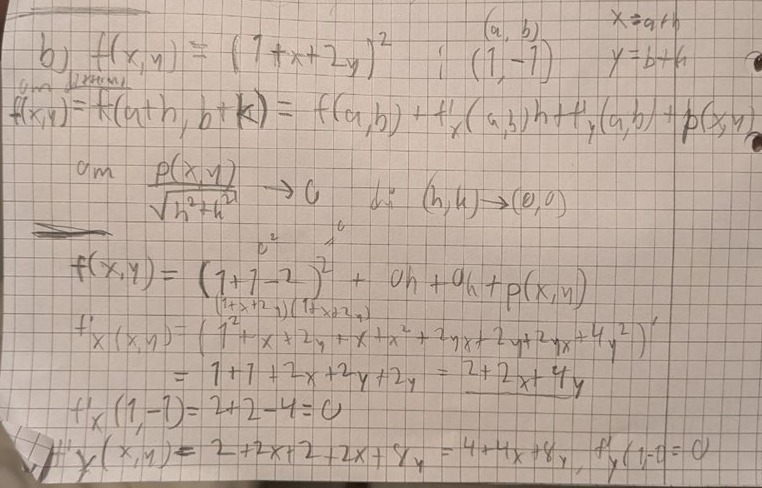 (a, b) x = a+h
9) f(x,y) = (1+x+2y)² ; (1,-1) y = b+k
f(x,y) = f(a+h, b+k) = f(a,b) + f'x(a,b)h + f'y(a,b)k + ρ(x,y)
om ρ(x,y)/√(h²+k²) → 0 (h,k) → (0,0)
0² 0
f(x,y) = (1+1-2)² + 0h + 0k + ρ(x,y)
(1+x+2y)(1+x+2y)
f'x(x,y) = (1² + x + 2y + x + x² + 2yx + 2y + 2yx + 4y²)'
= 1+1+2x+2y+2y = 2+2x+4y
f'x(1,-1) = 2+2-4 = 0
f'y(x,y) = 2+2x+2+2x+8y = 4+4x+8y, f'y(1,-1) = 0